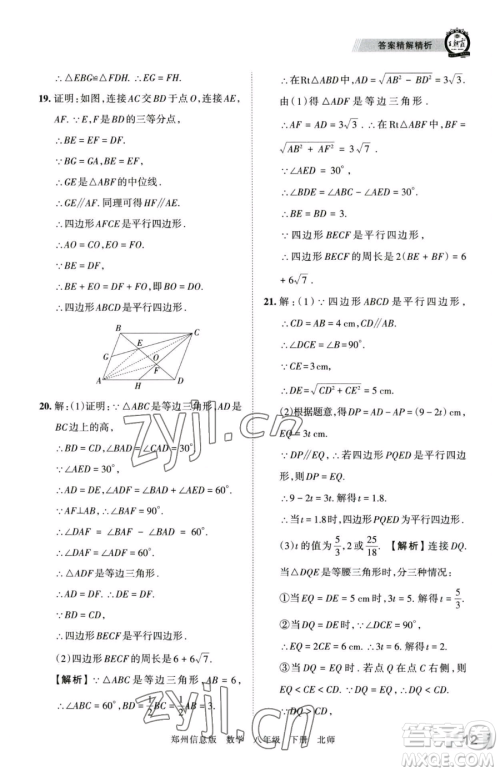 答案精解精析
∴△EBG≌△FDH. ∴EG=FH.
19. 证明：如图，连接AC交BD于点O，连接AE，
AF. ∵E，F是BD的三等分点，
∴BE=EF=DF.
∵BG=GA，BE=EF，
∴GE是△ABF的中位线.
∴GE∥AF. 同理可得GC∥AE.
∴四边形AFCE是平行四边形.
∴AO=CO，EO=FO.
∵BE=DF，
∴BE+EO=DF+FO，即BO=DO.
∴四边形ABCD是平行四边形.
B
C
E
G
O
F
A
H
D
20. 解：(1)证明：∵△ABC是等边三角形，AD是
BC边上的高，
∴BD=CD，∠BAD=∠CAD=30°.
∵∠AED=30°，
∴AD=ED，∠ADF=60°.
∵AF⊥AB，∴∠BAF=90°.
∴∠DAF=∠BAF-∠BAD=60°.
∴∠DAF=∠ADF=60°.
∴△ADF是等边三角形.
∴AD=DF.
∵AD=ED，∴ED=DF.
∵BD=CD，
∴四边形BECF是平行四边形.
(2)四边形BECF的周长是6+6√7.
【解析】∵△ABC是等边三角形，AB=6，
∴BC=AB=6，BD=1/2BC=1/2AB=3.
∴在Rt△ABD中，AD=√(AB²-BD²)=3√3.
由(1)得△ADF是等边三角形，
∴AF=AD=3√3. ∴在Rt△ABF中，BF=
√(AB²+AF²)=3√7.
∵∠AED=30°，
∴∠BDE=∠ABC-∠AED=30°.
∴∠BDE=∠AED. ∴BE=BD=3.
∵四边形BECF是平行四边形，
∴四边形BECF的周长是2(BF+BE)=6
+6√7.
21. 解：(1)∵四边形ABCD是平行四边形，
∴AB=CD=4 cm，AB∥CD.
∴∠DCE=∠B=90°.
∵CE=3 cm，
∴DE=√(CD²+CE²)=5 cm.
(2)根据题意，得DP=AD-AP=(9-2t)cm，
EQ=3t cm.
∵DP∥EQ，∴若四边形PQED是平行四边
形，则DP=EQ.
∴9-2t=3t. 解得t=1.8.
∴当t=1.8时，四边形PQED为平行四边形.
(3)t的值为5/3，2或25/18. 【解析】连接DQ.
当△DQE是等腰三角形时，分三种情况：
①当EQ=DE=5 cm时，3t=5. 解得t=5/3.
②当DE=DQ时，∵∠DCE=90°，
∴EQ=2CE=6 cm. ∴3t=6. 解得t=2.
③当EQ=DQ时，若点Q在点C右侧，
郑州信息版 数学 八年级 下册 北师
12
zyjl.cn
zyjl.cn